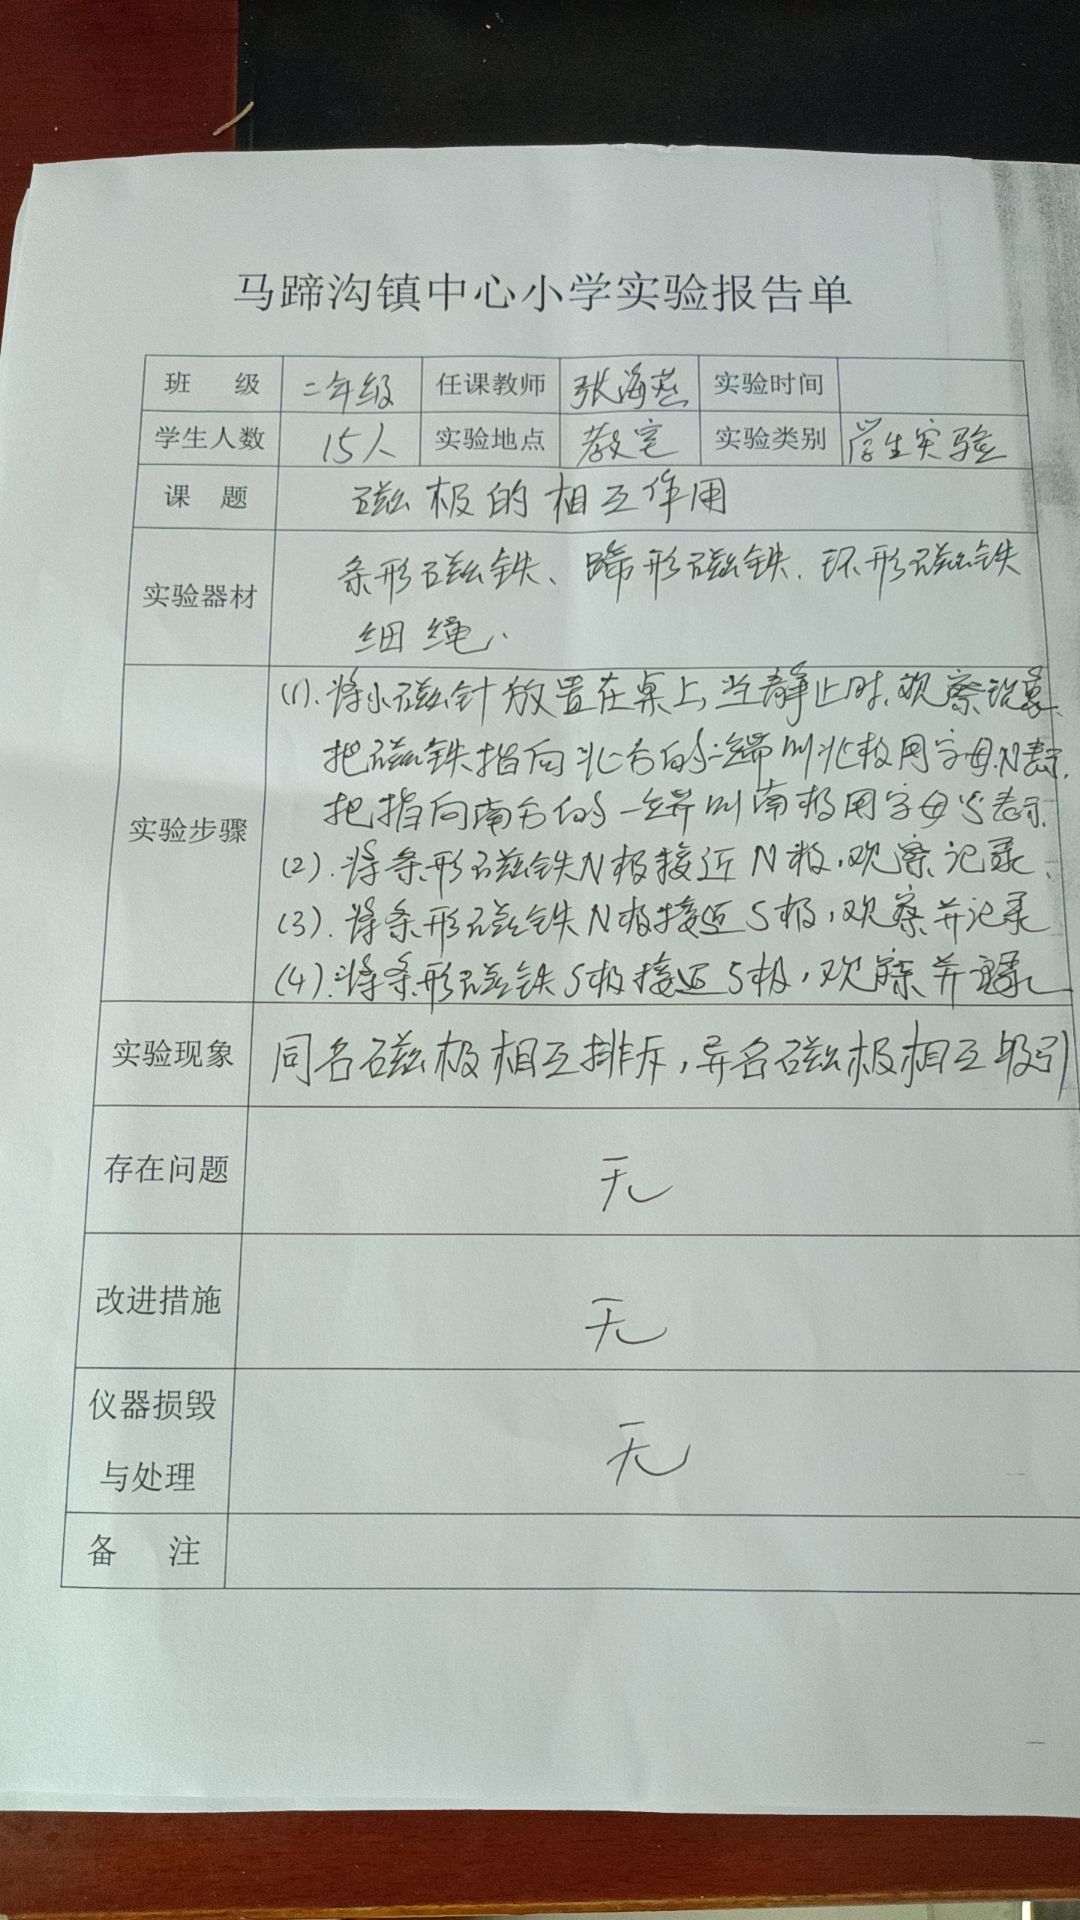 马蹄沟镇中心小学实验报告单
班 级 二年级 任课教师 张海燕 实验时间
学生人数 15人 实验地点 教室 实验类别 学生实验
课 题 磁极的相互作用
实验器材 条形磁铁、蹄形磁铁.环形磁铁
细绳.
实验步骤
(1).将小磁针放置在桌上,当静止时,观察现象.
把磁铁指向北方的一端叫北极用字母N表示,
把指向南方的一端叫南极用字母S表示.
(2).将条形磁铁N极接近N极,观察记录.
(3).将条形磁铁N极接近S极,观察并记录
(4).将条形磁铁S极接近S极,观察并记录
实验现象 同名磁极相互排斥,异名磁极相互吸引
存在问题 无
改进措施 无
仪器损毁
与处理 无
备 注